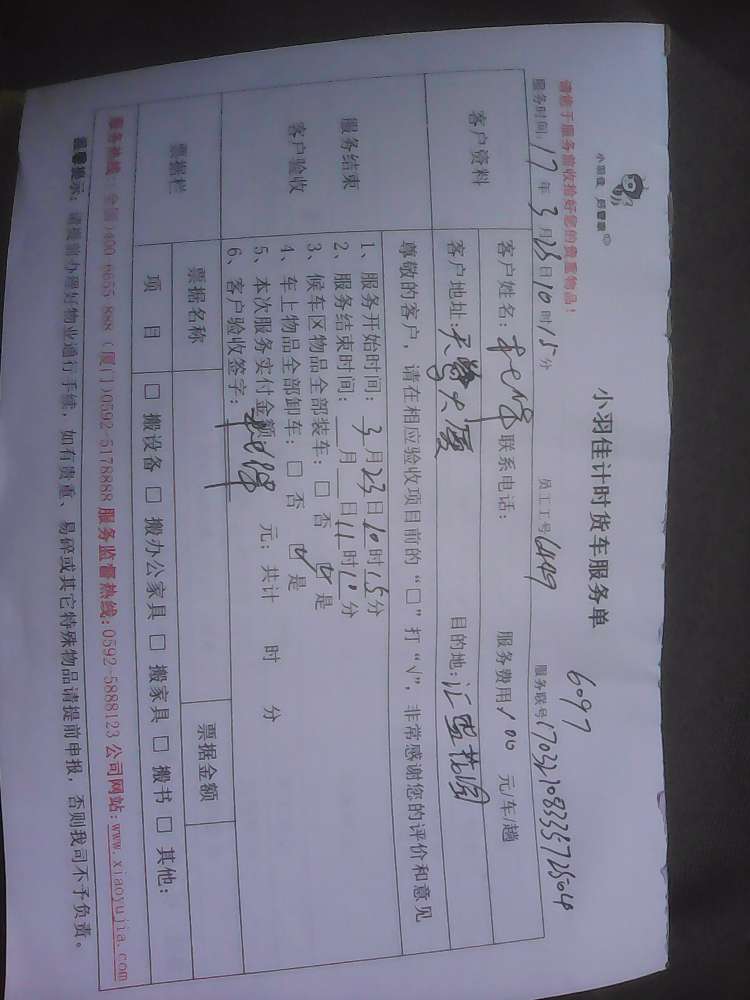 小羽佳 用智慧
小羽佳计时货车服务单
6097
请您于服务前收拾好您的贵重物品!
服务时间:17年3月23日10时15分 员工工号 服务联号
客户资料
客户姓名: 联系电话: 服务费用100元/车/趟
客户地址:天鹭大厦 目的地:汇景花园
服务结束
客户验收
尊敬的客户,请在相应验收项目前的“□”打“√”,非常感谢您的评价和意见
1、服务开始时间:3月23日10时15分
2、服务结束时间:__月__日11时10分
3、候车区物品全部装车:□ 否 ☑ 是
4、车上物品全部卸车:□ 否 ☑ 是
5、本次服务实付金额 元;共计 时 分
6、客户验收签字:
票据栏
票据名称 票据金额
项目 □ 搬设备 □ 搬办公家具 □ 搬家具 □ 搬书 □ 其他:
服务热线:全国)400-6655-888(厦门)0592-5178888 服务监督热线:0592-5888123 公司网站:www.xiaoyujia.com
温馨提示:请提前办理好物业通行手续,如有贵重、易碎或其它特殊物品请提前申报,否则我司不予负责。